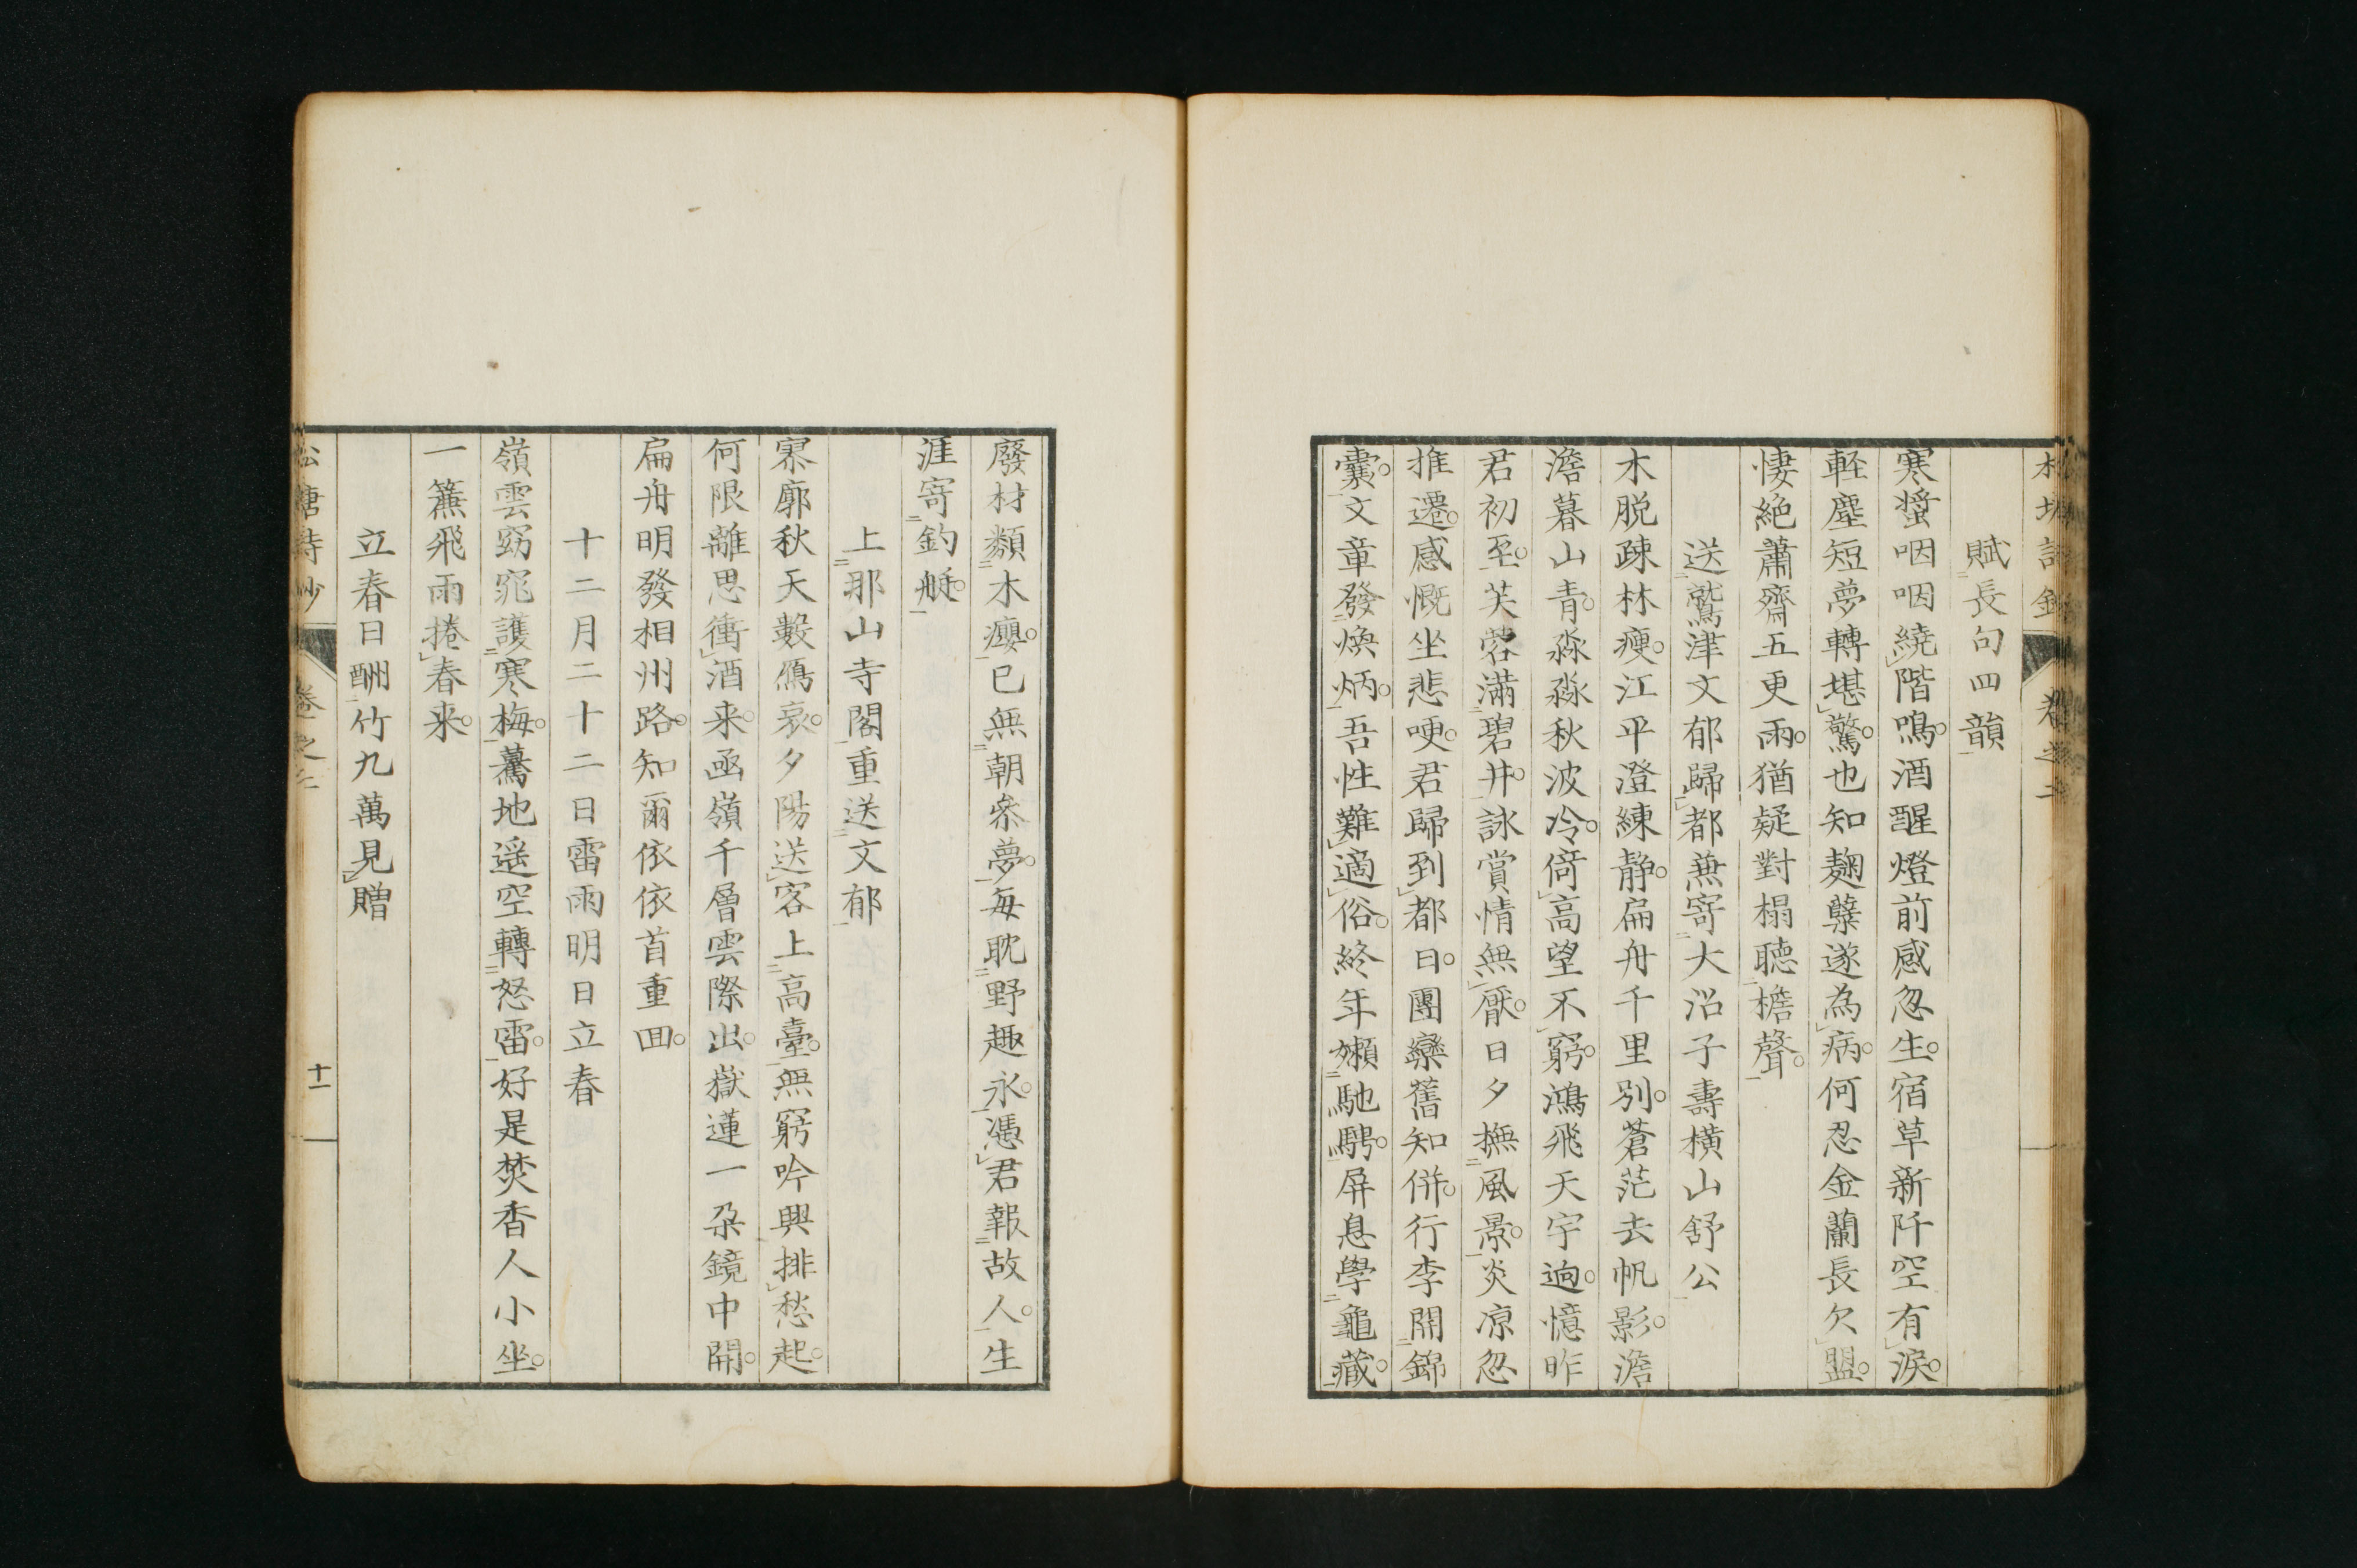 賦長句四韻
寒螿咽咽繞階鳴。酒醒燈前感忽生。宿草新阡空有淚。
軽塵短夢轉堪驚。也知麹櫱遂為病。何忍金蘭長欠盟。
悽絶蕭齋五更雨。猶疑對榻聴檐聲。
送鷲津文郁歸都兼寄大沼子壽横山舒公
木脱疎林痩。江平澄練静。扁舟千里別。蒼茫去帆影。澹
澹暮山青。淼淼秋波冷。倚高望不窮。鴻飛天宇逈。憶昨
君初至。芙蓉滿碧井。詠賞情無厭。日夕撫風景。炎凉忽
推遷。感慨坐悲哽。君歸到都日。團欒舊知併。行李開錦
囊。文章發煥炳。吾性難適俗。終年嬾馳騁。屏息學龜藏。
廢材類木癭。已無朝參夢。毎耽野趣永。憑君報故人。生
涯寄釣艇。
上那山寺閣重送文郁
寥廓秋天數鴈哀。夕陽送客上高臺。無窮吟興排愁起。
何限離思衝酒来。函嶺千層雲際出。嶽蓮一朶鏡中開。
扁舟明發相州路。知爾依依首重回。
十二月二十二日雷雨明日立春
嶺雲窈窕護寒梅。驀地遥空轉怒雷。好是焚香人小坐。
一簾飛雨捲春来。
立春日酬竹九萬見贈
松塘詩鈔 卷之二 十一